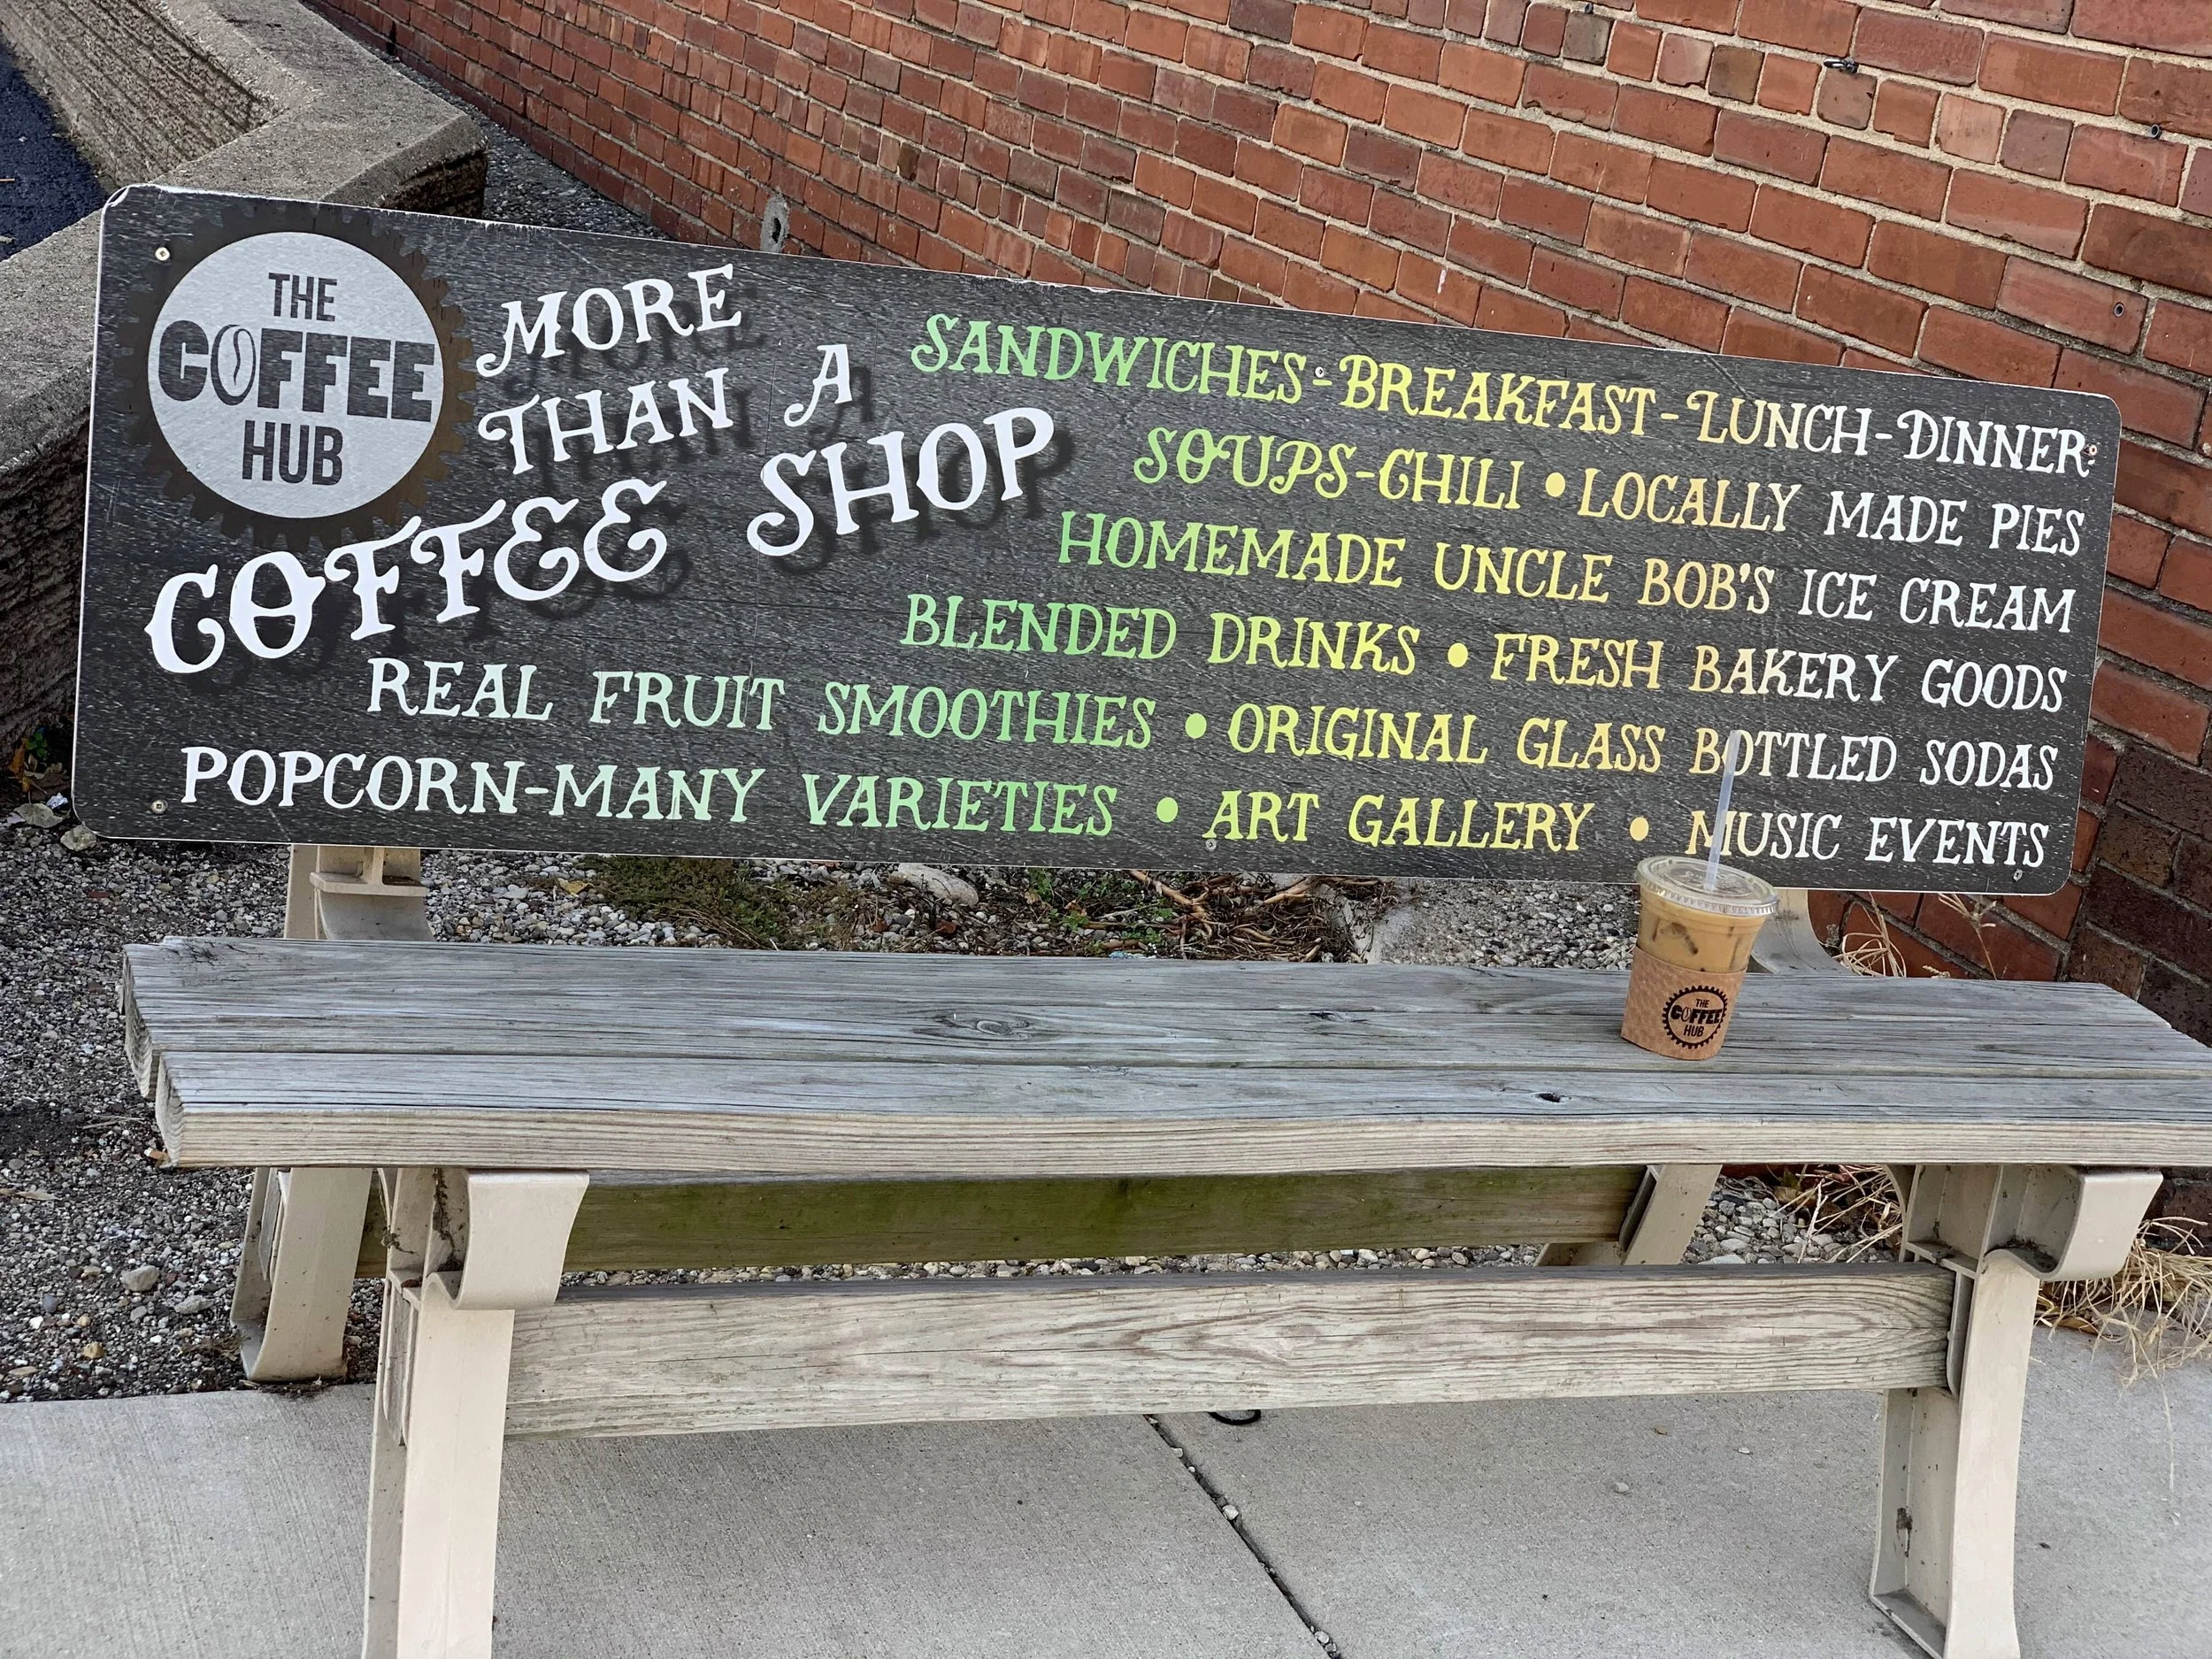 THE
COFFEE
HUB
MORE
THAN A
COFFEE SHOP
SANDWICHES-BREAKFAST-LUNCH-DINNER
SOUPS-CHILI • LOCALLY MADE PIES
HOMEMADE UNCLE BOB'S ICE CREAM
BLENDED DRINKS • FRESH BAKERY GOODS
REAL FRUIT SMOOTHIES • ORIGINAL GLASS BOTTLED SODAS
POPCORN-MANY VARIETIES • ART GALLERY • MUSIC EVENTS
THE
COFFEE
HUB